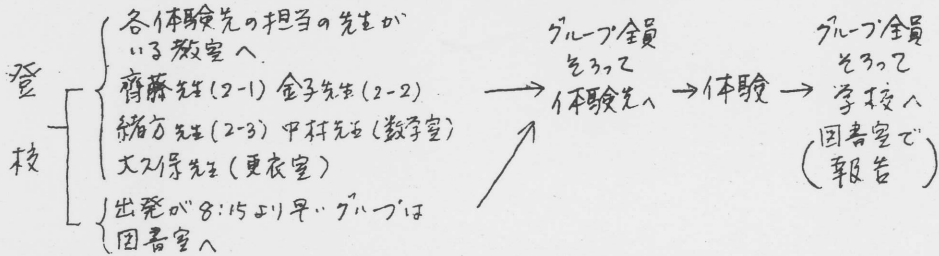 登校
各体験先の担当の先生が
いる教室へ
齊藤先生(2-1) 金子先生(2-2)
緒方先生(2-3) 中村先生(数学室)
大久保先生(更衣室)
出発が8:15より早いグループは
図書室へ
グループ全員
そろって
体験先へ
→体験→
グループ全員
そろって
学校へ
(図書室で
報告)